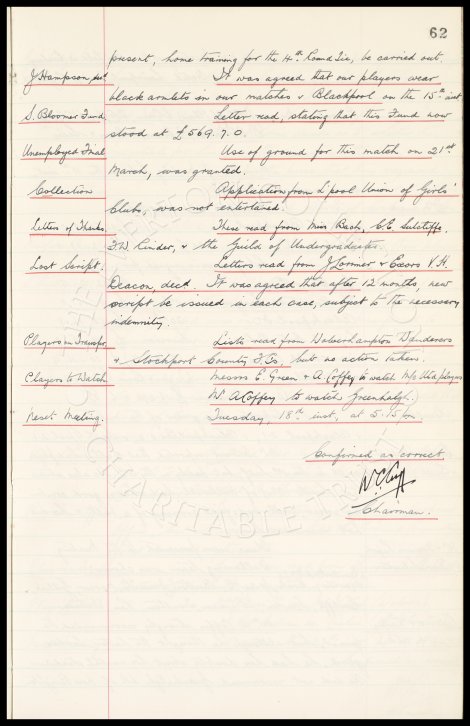 62
present, home training for the 4th Round Tie, be carried out.
J Hampson, decd. It was agreed that our players wear
black armlets in our matches v Blackpool on the 15th inst
S. Bloomer Fund. Letter read, stating that this Fund now
stood at £569.7.0.
Unemployed Final Use of ground for this match on 21st
March, was granted.
Collection Application from L'pool Union of Girls'
Clubs, was not entertained.
Letters of Thanks. These read from Miss Bach, C.E. Sutcliffe,
F.W. Rinder, & the Guild of Undergraduates.
Lost Script. Letters read from J Lorimer & Exors V.H.
Deacon, decd. It was agreed that after 12 months, new
script be issued in each case, subject to the necessary
indemnity.
Players on Transfer Lists read from Wolverhampton Wanderers
& Stockport County F.Cs, but no action taken.
Players to Watch Messrs E. Green & A. Coffey to watch M/c Utd players
Mr A Coffey to watch Greenhalgh.
Next Meeting. Tuesday, 18th inst, at 5.15 pm
Confirmed as correct
W.C. Cuff
Chairman.
THE EVERTON
CHARITABLE TRUST